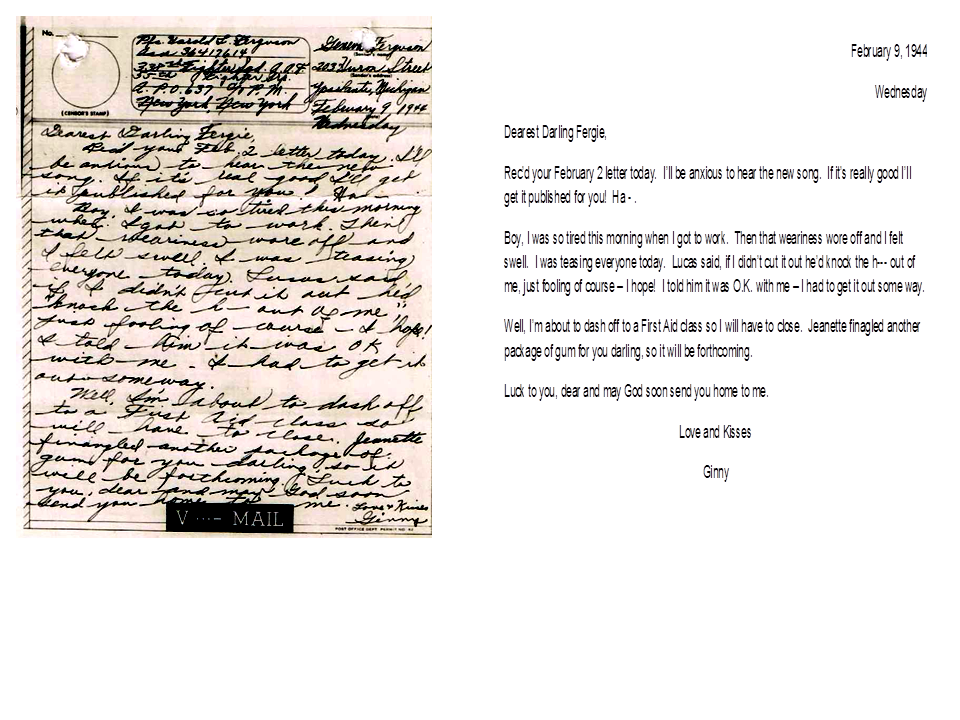 No.
(CENSOR'S STAMP)
Pfc. Harold L. Ferguson
Asn 36412614
Fighter Sqd. A.A.F.
35th Fighter Gp.
A.P.O. 637 c/o P.M.
New York, New York
Ferguson
(Sender's name)
203 Huron Street
(Sender's address)
Ypsilanti, Michigan
February 9, 1944
Wednesday
Dearest Darling Fergie,
Rec'd your Feb. 2 letter today. I'll
be anxious to hear the new
song. If it's real good I'll get
it published for you! Ha -
Boy, I was so tired this morning
when I got to work. Then
that weariness wore off and
I felt swell. I was teasing
everyone today. Lucas said,
if I didn't cut it out he'd
"knock the h- out of me"
just fooling of course - I hope!
I told him it was OK
with me - I had to get it
out someway.
Well, I'm about to dash off
to a First Aid class so
will have to close. Jeanette
finangled another package of
gum for you darling, so it
will be forthcoming. Luck to
you, dear and may God soon
send you home to me. Love & Kisses
Ginny
V ···– MAIL
POST OFFICE DEPT. PERMIT NO.
February 9, 1944
Wednesday
Dearest Darling Fergie,
Rec'd your February 2 letter today.  I'll be anxious to hear the new song.  If it's really good I'll
get it published for you!  Ha - .
Boy, I was so tired this morning when I got to work.  Then that weariness wore off and I felt
swell.  I was teasing everyone today.  Lucas said, if I didn't cut it out he'd knock the h--- out of
me, just fooling of course – I hope!  I told him it was O.K. with me – I had to get it out some way.
Well, I'm about to dash off to a First Aid class so I will have to close.  Jeanette finagled another
package of gum for you darling, so it will be forthcoming.
Luck to you, dear and may God soon send you home to me.
Love and Kisses
Ginny